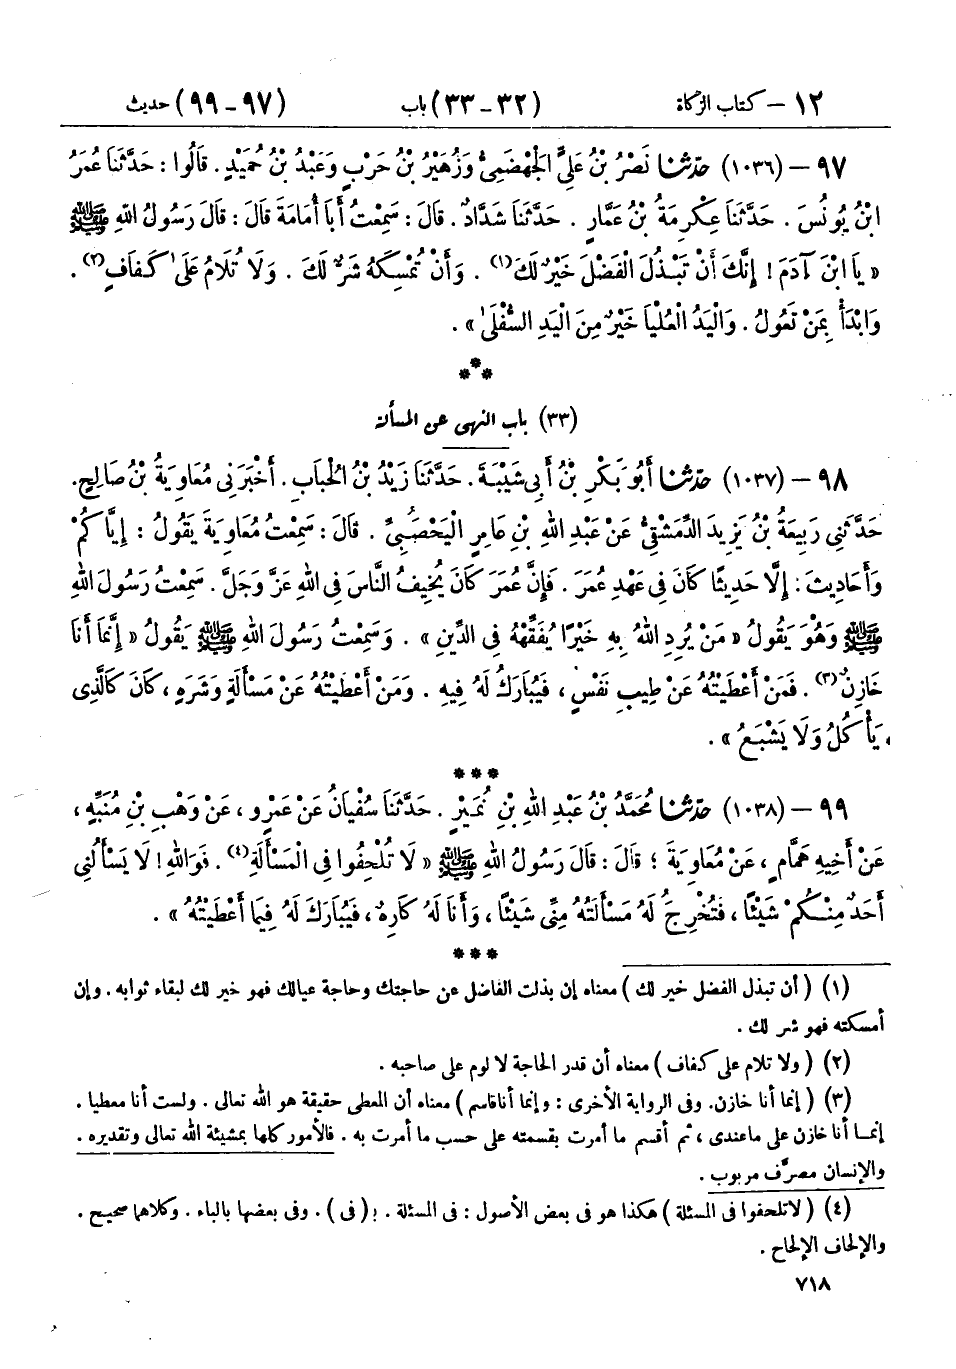 ١٢ – كتاب الزكاة (٣٢ – ٣٣) باب (٩٧ – ٩٩) حديث
٩٧ – (١٠٣٦) حَدَّثَنَا نَصْرُ بْنُ عَلِيٍّ الْجَهْضَمِىُّ وَزُهَيْرُ بْنُ حَرْبٍ وَعَبْدُ بْنُ حُمَيْدٍ . قَالُوا : حَدَّثَنَا عُمَرُ
ابْنُ يُونُسَ . حَدَّثَنَا عِكْرِمَةُ بْنُ عَمَّارٍ . حَدَّثَنَا شَدَّادٌ . قَالَ : سَمِعْتُ أَبَا أُمَامَةَ قَالَ : قَالَ رَسُولُ اللهِ ﷺ
« يَا ابْنَ آدَمَ ! إِنَّكَ أَنْ تَبْذُلَ الْفَضْلَ خَيْرٌ لَكَ(١) . وَأَنْ تُمْسِكَهُ شَرٌّ لَكَ . وَلَا تُلَامُ عَلَى كَفَافٍ(٢) .
وَابْدَأْ بِمَنْ تَعُولُ . وَالْيَدُ الْعُلْيَا خَيْرٌ مِنَ الْيَدِ السُّفْلَى » .
***
(٣٣) باب النهى عن المسألة
٩٨ – (١٠٣٧) حَدَّثَنَا أَبُو بَكْرِ بْنُ أَبِى شَيْبَةَ . حَدَّثَنَا زَيْدُ بْنُ الْحُبَابِ . أَخْبَرَنِى مُعَاوِيَةُ بْنُ صَالِحٍ .
حَدَّثَنِى رَبِيعَةُ بْنُ يَزِيدَ الدِّمَشْقِىُّ عَنْ عَبْدِ اللهِ بْنِ عَامِرٍ الْيَحْصَبِىِّ . قَالَ : سَمِعْتُ مُعَاوِيَةَ يَقُولُ : إِيَّاكُمْ
وَأَحَادِيثَ : إِلَّا حَدِيثًا كَانَ فِى عَهْدِ عُمَرَ . فَإِنَّ عُمَرَ كَانَ يُخِيفُ النَّاسَ فِى اللهِ عَزَّ وَجَلَّ . سَمِعْتُ رَسُولَ اللهِ
ﷺ وَهُوَ يَقُولُ « مَنْ يُرِدِ اللهُ بِهِ خَيْرًا يُفَقِّهْهُ فِى الدِّينِ » . وَسَمِعْتُ رَسُولَ اللهِ ﷺ يَقُولُ « إِنَّمَا أَنَا
خَازِنٌ(٣) . فَمَنْ أَعْطَيْتُهُ عَنْ طِيبِ نَفْسٍ ، فَيُبَارَكُ لَهُ فِيهِ . وَمَنْ أَعْطَيْتُهُ عَنْ مَسْأَلَةٍ وَشَرَهٍ ، كَانَ كَالَّذِى
يَأْكُلُ وَلَا يَشْبَعُ » .
***
٩٩ – (١٠٣٨) حَدَّثَنَا مُحَمَّدُ بْنُ عَبْدِ اللهِ بْنِ نُمَيْرٍ . حَدَّثَنَا سُفْيَانُ عَنْ عَمْرٍو ، عَنْ وَهْبِ بْنِ مُنَبِّهٍ ،
عَنْ أَخِيهِ هَمَّامٍ ، عَنْ مُعَاوِيَةَ ؛ قَالَ : قَالَ رَسُولُ اللهِ ﷺ « لَا تُلْحِفُوا فِى الْمَسْأَلَةِ(٤) . فَوَاللهِ ! لَا يَسْأَلُنِى
أَحَدٌ مِنْكُمْ شَيْئًا ، فَتُخْرِجَ لَهُ مَسْأَلَتُهُ مِنِّى شَيْئًا ، وَأَنَا لَهُ كَارِهٌ ، فَيُبَارَكَ لَهُ فِيمَا أَعْطَيْتُهُ » .
***
(١) ( أن تبذل الفضل خير لك ) معناه إن بذلت الفاضل عن حاجتك وحاجة عيالك فهو خير لك لبقاء ثوابه . وإن
أمسكته فهو شر لك .
(٢) ( ولا تلام على كفاف ) معناه أن قدر الحاجة لا لوم على صاحبه .
(٣) ( إنما أنا خازن . وفى الرواية الأخرى : وإنما أنا قاسم ) معناه أن المعطى حقيقة هو الله تعالى . ولست أنا معطيا .
إنما أنا خازن على ما عندى ، ثم أقسم ما أمرت بقسمته على حسب ما أمرت به . فالأمور كلها بمشيئة الله تعالى وتقديره .
والإنسان مصرَّف مربوب .
(٤) ( لا تلحفوا فى المسئلة ) هكذا هو فى بعض الأصول : فى المسئلة . بـ ( فى ) . وفى بعضها بالباء . وكلاهما صحيح .
والإلحاف الإلحاح .
٧١٨